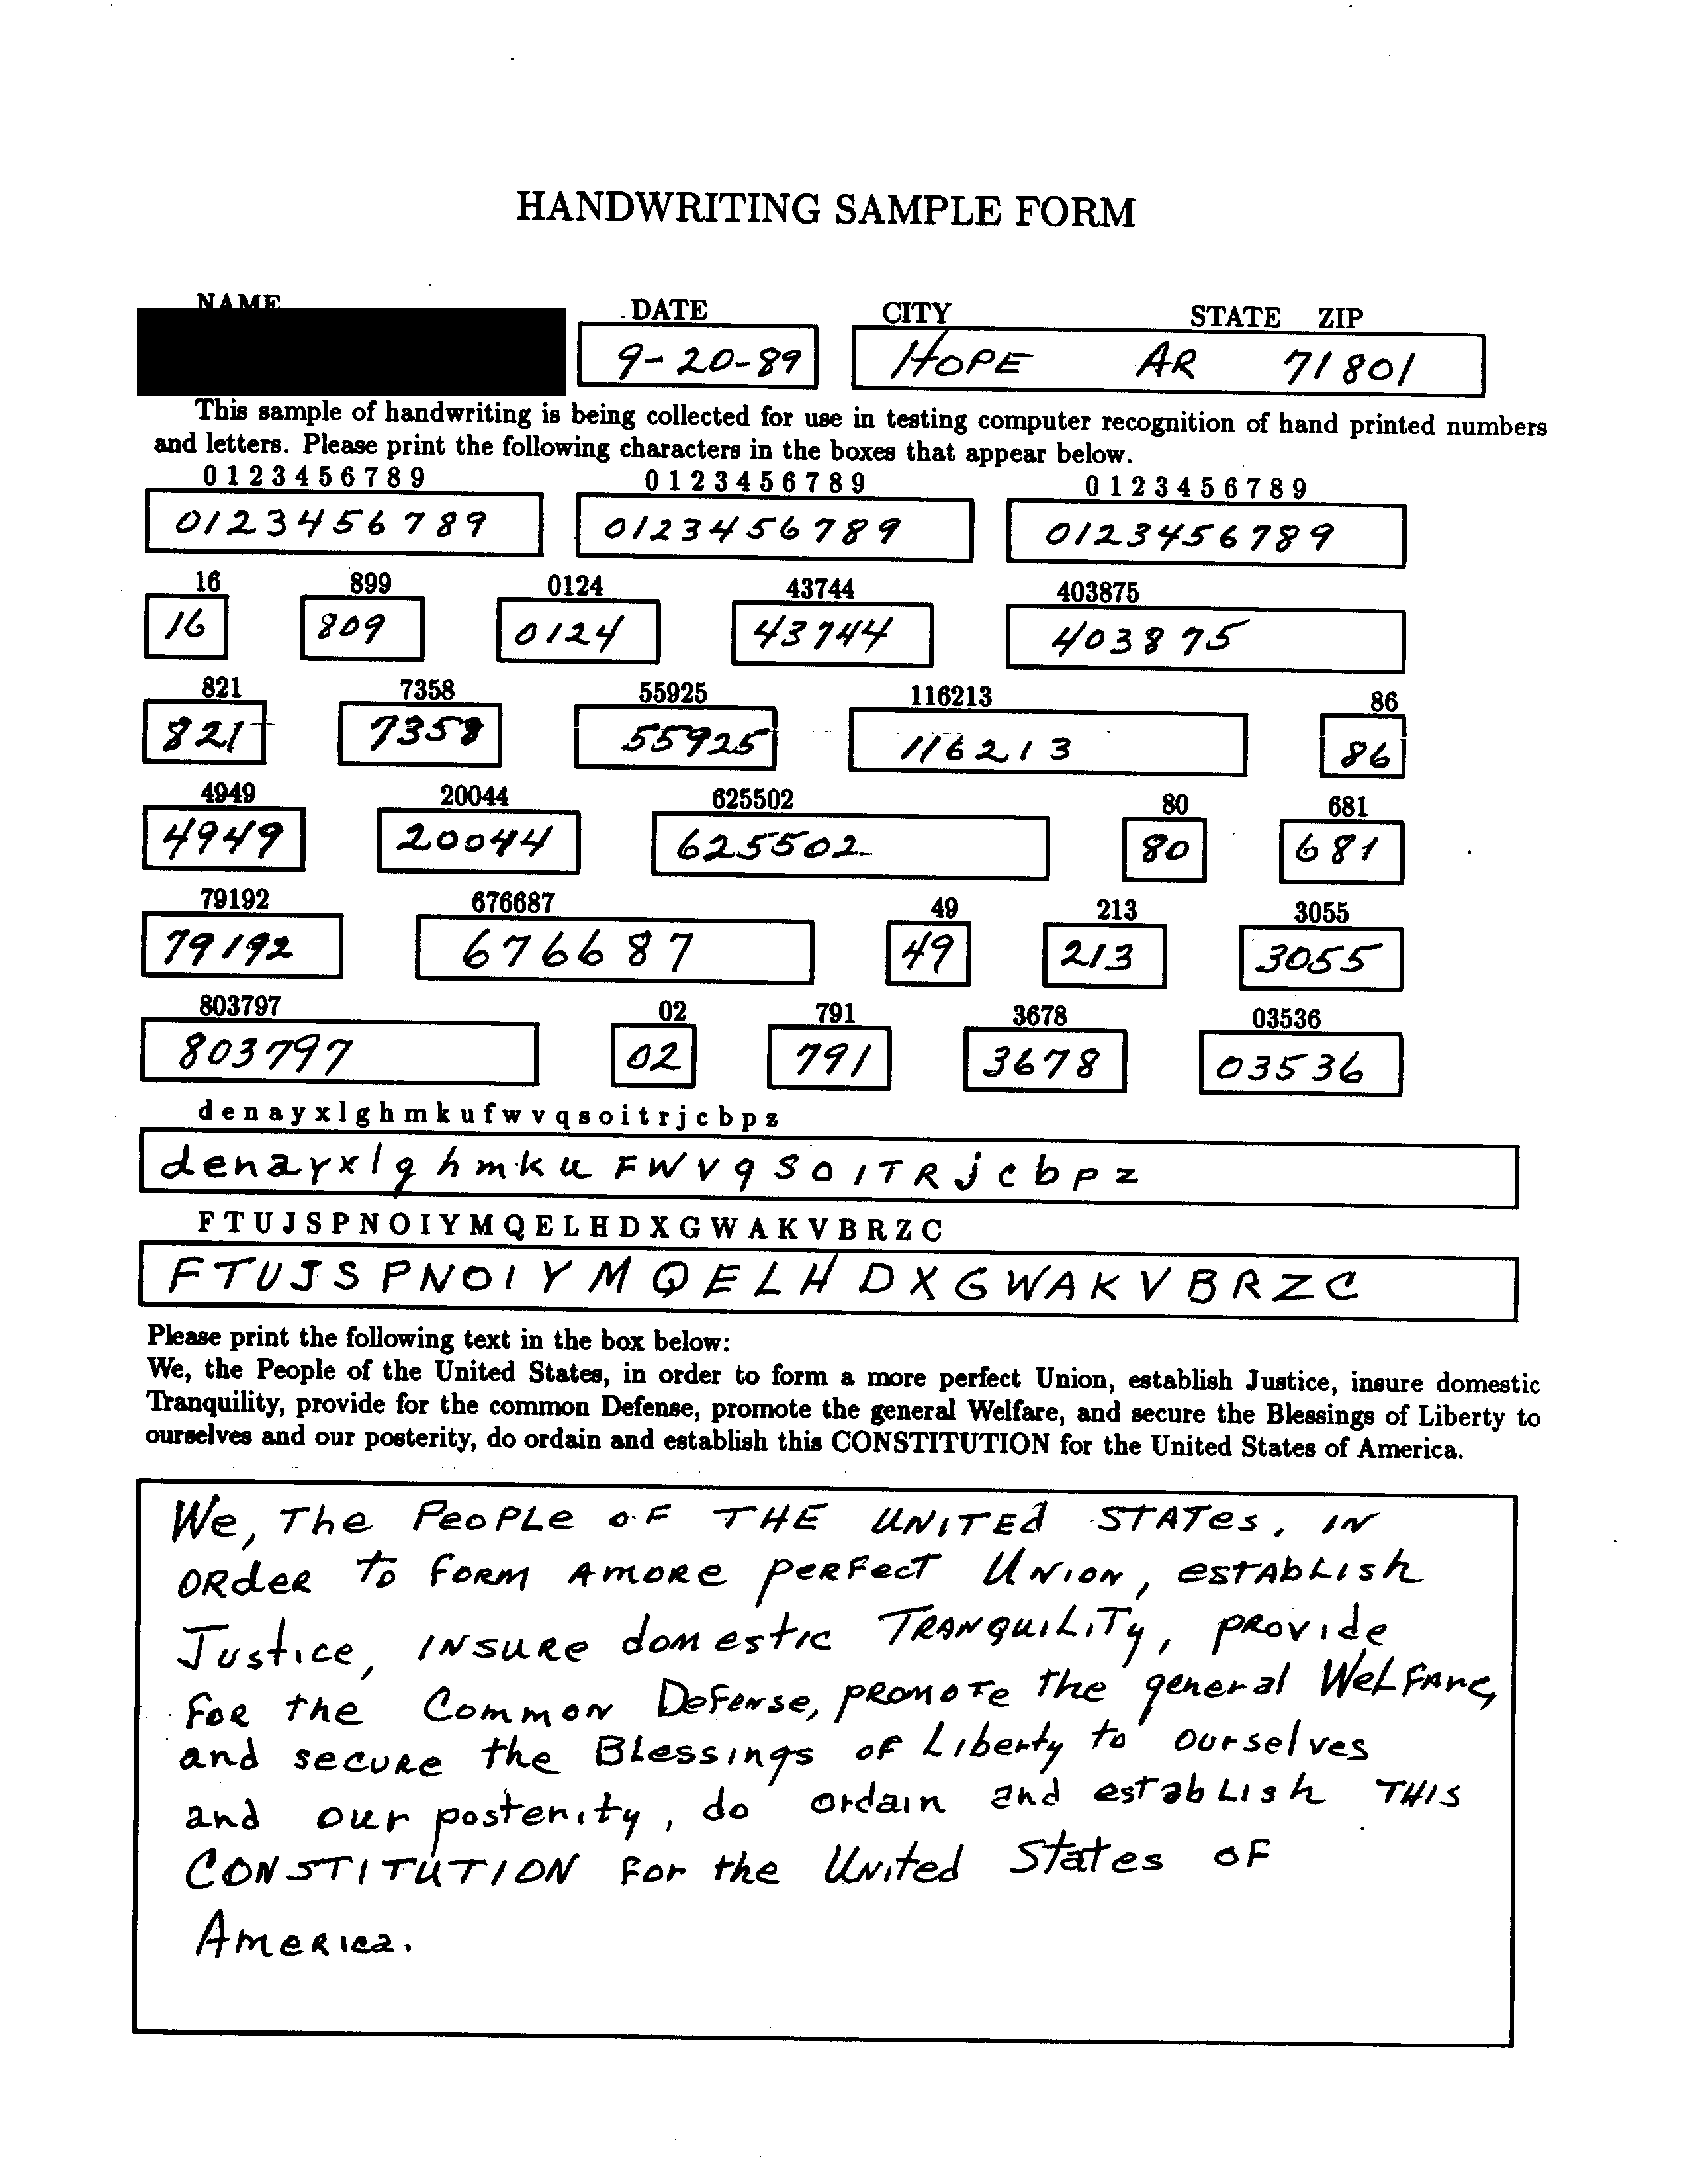 HANDWRITING SAMPLE FORM
NAME DATE CITY STATE ZIP
9-20-89 HOPE AR 71801
This sample of handwriting is being collected for use in testing computer recognition of hand printed numbers
and letters. Please print the following characters in the boxes that appear below.
0 1 2 3 4 5 6 7 8 9 0 1 2 3 4 5 6 7 8 9 0 1 2 3 4 5 6 7 8 9
0123456789 0123456789 0123456789
16 899 0124 43744 403875
16 809 0124 43744 403875
821 7358 55925 116213 86
821 7358 55925 116213 86
4949 20044 625502 80 681
4949 20044 625502 80 681
79192 676687 49 213 3055
79192 676687 49 213 3055
803797 02 791 3678 03536
803797 02 791 3678 03536
d e n a y x l g h m k u f w v q s o i t r j c b p z
d e n a y x l g h m k u F W V q S O I T R j c b p z
F T U J S P N O I Y M Q E L H D X G W A K V B R Z C
F T U J S P N O I Y M Q E L H D X G W A K V B R Z C
Please print the following text in the box below:
We, the People of the United States, in order to form a more perfect Union, establish Justice, insure domestic
Tranquility, provide for the common Defense, promote the general Welfare, and secure the Blessings of Liberty to
ourselves and our posterity, do ordain and establish this CONSTITUTION for the United States of America.
We, The PeoPLe oF THE UNITEd STATes, IN
ORdeR To FoRM A moRe peRFecT UNION, esTAbLIsh
Justice, INSURe domestic TRANquiLiTy, pRovide
FoR the Common DeFense, pRomoTe the general WeLFAre,
and secuRe the BLessings oF Liberty to ourselves
and our posterity, do ordain and estabLIsh THIS
CONSTITUTION For the United States oF
AmeRica.